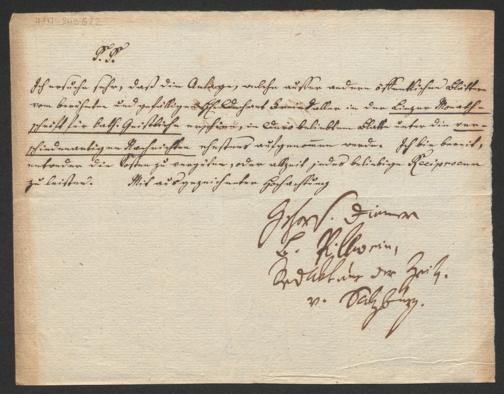 P. P.
Ich ersuche sehr, daß die Anlage, welche ausser andern öffentlichen Blättern
von berühmten und gefälligen H. Freindaller in der Linzer Monath-
schrift für kath. Geistliche erschien, in dero beliebtem Blatte unter die ver-
schiedenartigen Nachrichten ehestens aufgenommen werde. Ich bin bereit,
entweder die Kosten zu vergüten, oder allzeit jedes beliebige Reciprocum
zu leisten. Mit ausgezeichneter Hochachtung
gehors. Diener
B. Pillwein,
Redakteur der Zeitg.
v. Salzburg.